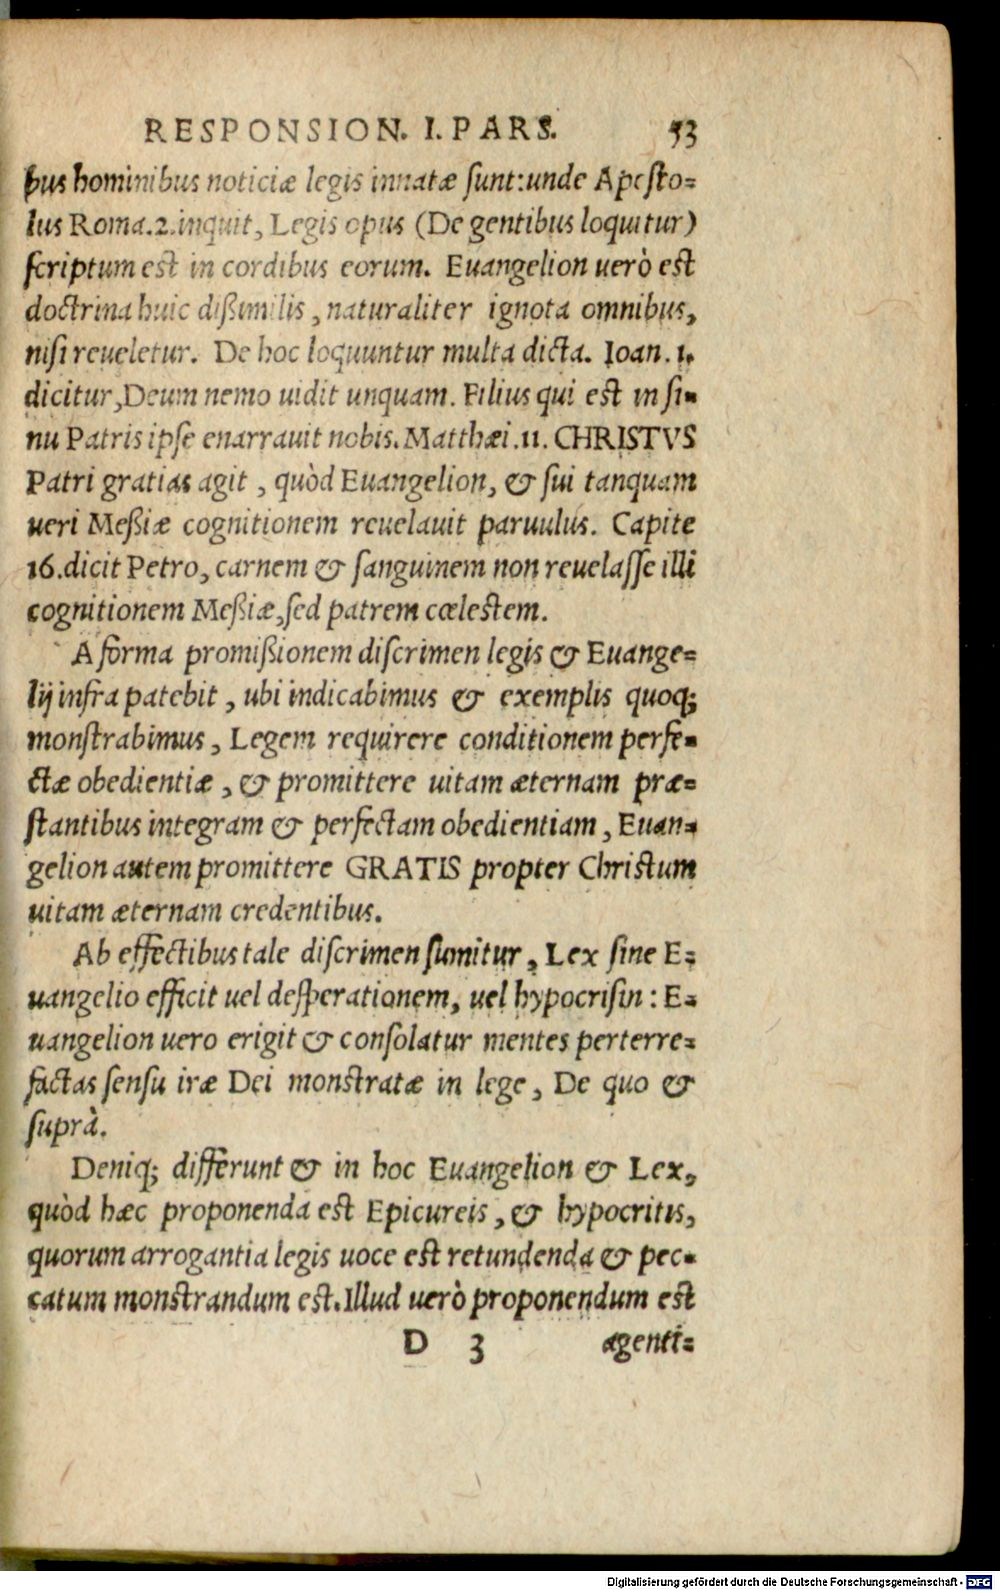 RESPONSION. I. PARS. 53
bus hominibus noticiæ legis innatæ sunt: unde Aposto=
lus Roma.2.inquit, Legis opus (De gentibus loquitur)
scriptum est in cordibus eorum. Euangelion uerò est
doctrina huic dißimilis, naturaliter ignota omnibus,
nisi reueletur. De hoc loquuntur multa dicta. Ioan. 1.
dicitur, Deum nemo uidit unquam. Filius qui est in si=
nu Patris ipse enarrauit nobis. Matthæi.11. CHRISTVS
Patri gratias agit, quòd Euangelion, & sui tanquam
ueri Meßiæ cognitionem reuelauit paruulus. Capite
16. dicit Petro, carnem & sanguinem non reuelasse illi
cognitionem Meßiæ, sed patrem cœlestem.
A forma promißionem discrimen legis & Euange=
lij infra patebit, ubi indicabimus & exemplis quoq;
monstrabimus, Legem requirere conditionem perfe=
ctæ obedientiæ, & promittere uitam æternam præ=
stantibus integram & perfectam obedientiam, Euan=
gelion autem promittere GRATIS propter Christum
uitam æternam credentibus.
Ab effectibus tale discrimen sumitur, Lex sine E=
uangelio efficit uel desperationem, uel hypocrisin: E=
uangelion uero erigit & consolatur mentes perterre=
factas sensu iræ Dei monstratæ in lege, De quo &
suprà.
Deniq; differunt & in hoc Euangelion & Lex,
quòd hæc proponenda est Epicureis, & hypocritis,
quorum arrogantia legis uoce est retundenda & pec=
catum monstrandum est. Illud uerò proponendum est
D 3 agenti=
Digitalisierung gefördert durch die Deutsche Forschungsgemeinschaft - DFG